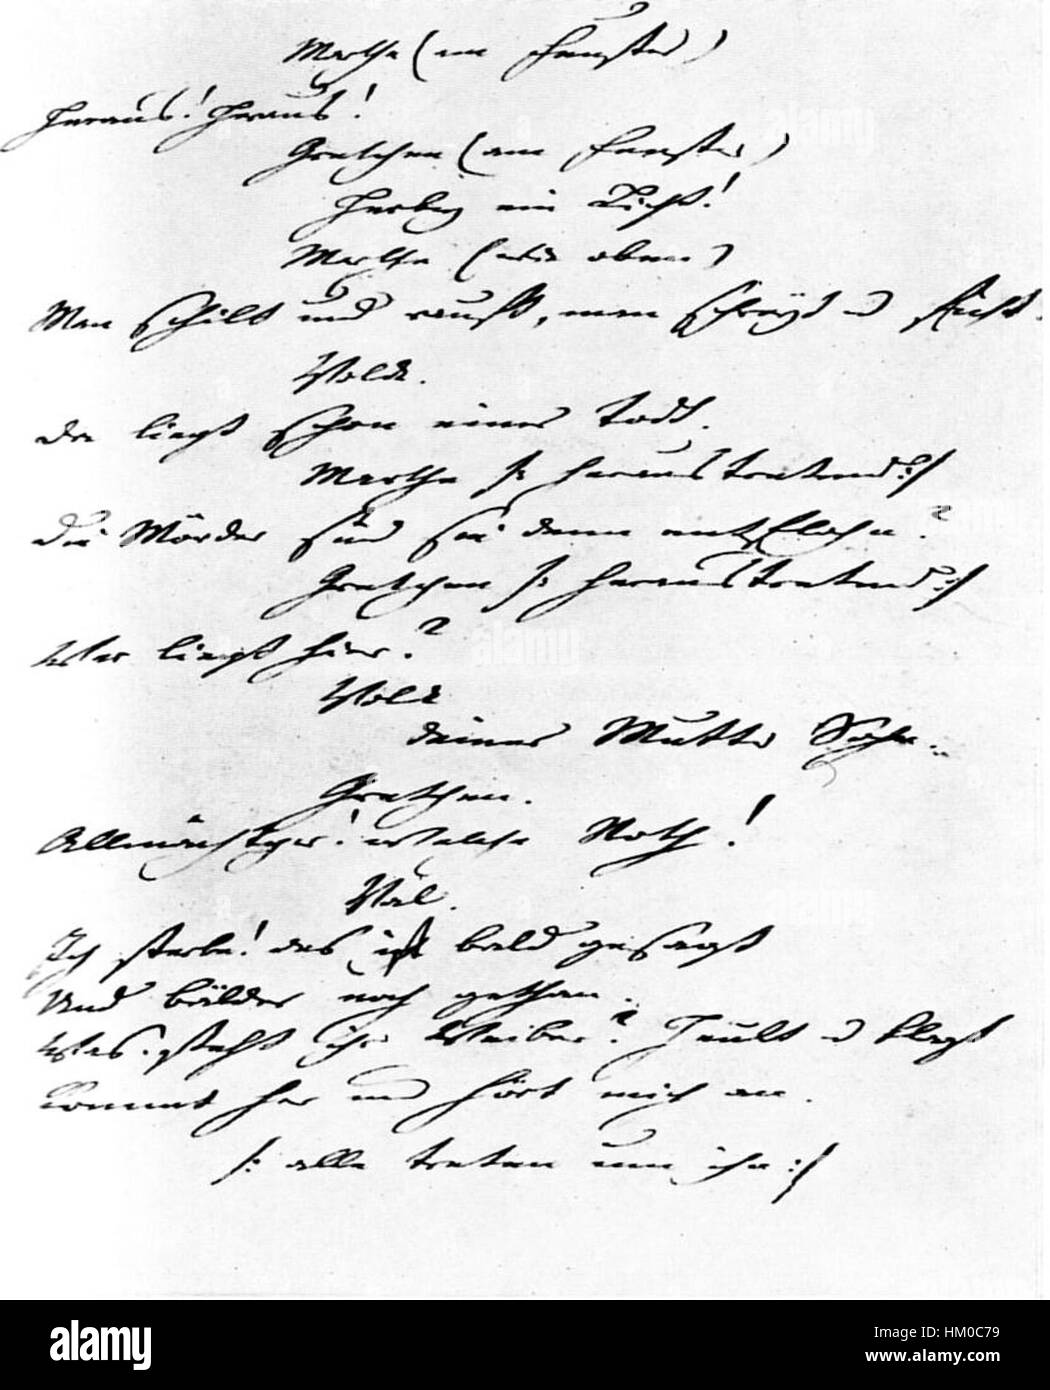 Marthe (am Fenster)
Heraus! Heraus!
Gretchen (am Fenster)
Herbey ein Licht!
Marthe (wie oben)
Man schilt und rauft, man schreyt u ficht.
Volck.
Da liegt schon einer todt.
Marthe /: heraustretend :/
Die Mörder sind sie denn entflohn?
Gretchen /: heraustretend :/
Wer liegt hier?
Volck
deiner Mutter Sohn.
Gretchen.
Allmächtger! welche Noth!
Val.
Ich sterbe! das ist bald gesagt
Und bälder noch gethan.
Was steht ihr Weiber? Heult u klagt
Kommt her und hört mich an.
/: alle treten um ihn :/
alamy
alamy
alamy
a
a
a
alamy
Image ID: HM0C79
www.alamy.com